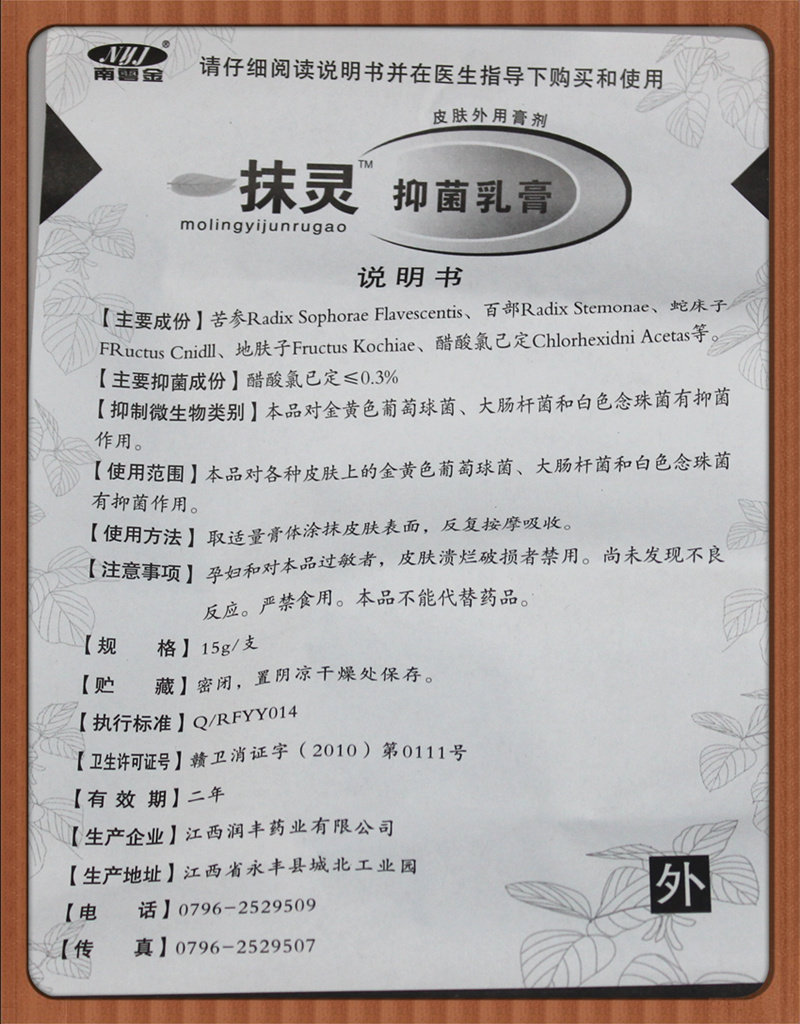 NYJ®
南雲金
请仔细阅读说明书并在医生指导下购买和使用
皮肤外用膏剂
抹灵™
抑菌乳膏
molingyijunrugao
说明书
【主要成份】苦参Radix Sophorae Flavescentis、百部Radix Stemonae、蛇床子
FRuctus Cnidll、地肤子Fructus Kochiae、醋酸氯已定Chlorhexidni Acetas等。
【主要抑菌成份】醋酸氯已定≤0.3%
【抑制微生物类别】本品对金黄色葡萄球菌、大肠杆菌和白色念珠菌有抑菌
作用。
【使用范围】本品对各种皮肤上的金黄色葡萄球菌、大肠杆菌和白色念珠菌
有抑菌作用。
【使用方法】取适量膏体涂抹皮肤表面，反复按摩吸收。
【注意事项】孕妇和对本品过敏者，皮肤溃烂破损者禁用。尚未发现不良
反应。严禁食用。本品不能代替药品。
【规 格】15g/支
【贮 藏】密闭，置阴凉干燥处保存。
【执行标准】Q/RFYY014
【卫生许可证号】赣卫消证字（2010）第0111号
【有效期】二年
【生产企业】江西润丰药业有限公司
【生产地址】江西省永丰县城北工业园
外
【电 话】0796-2529509
【传 真】0796-2529507